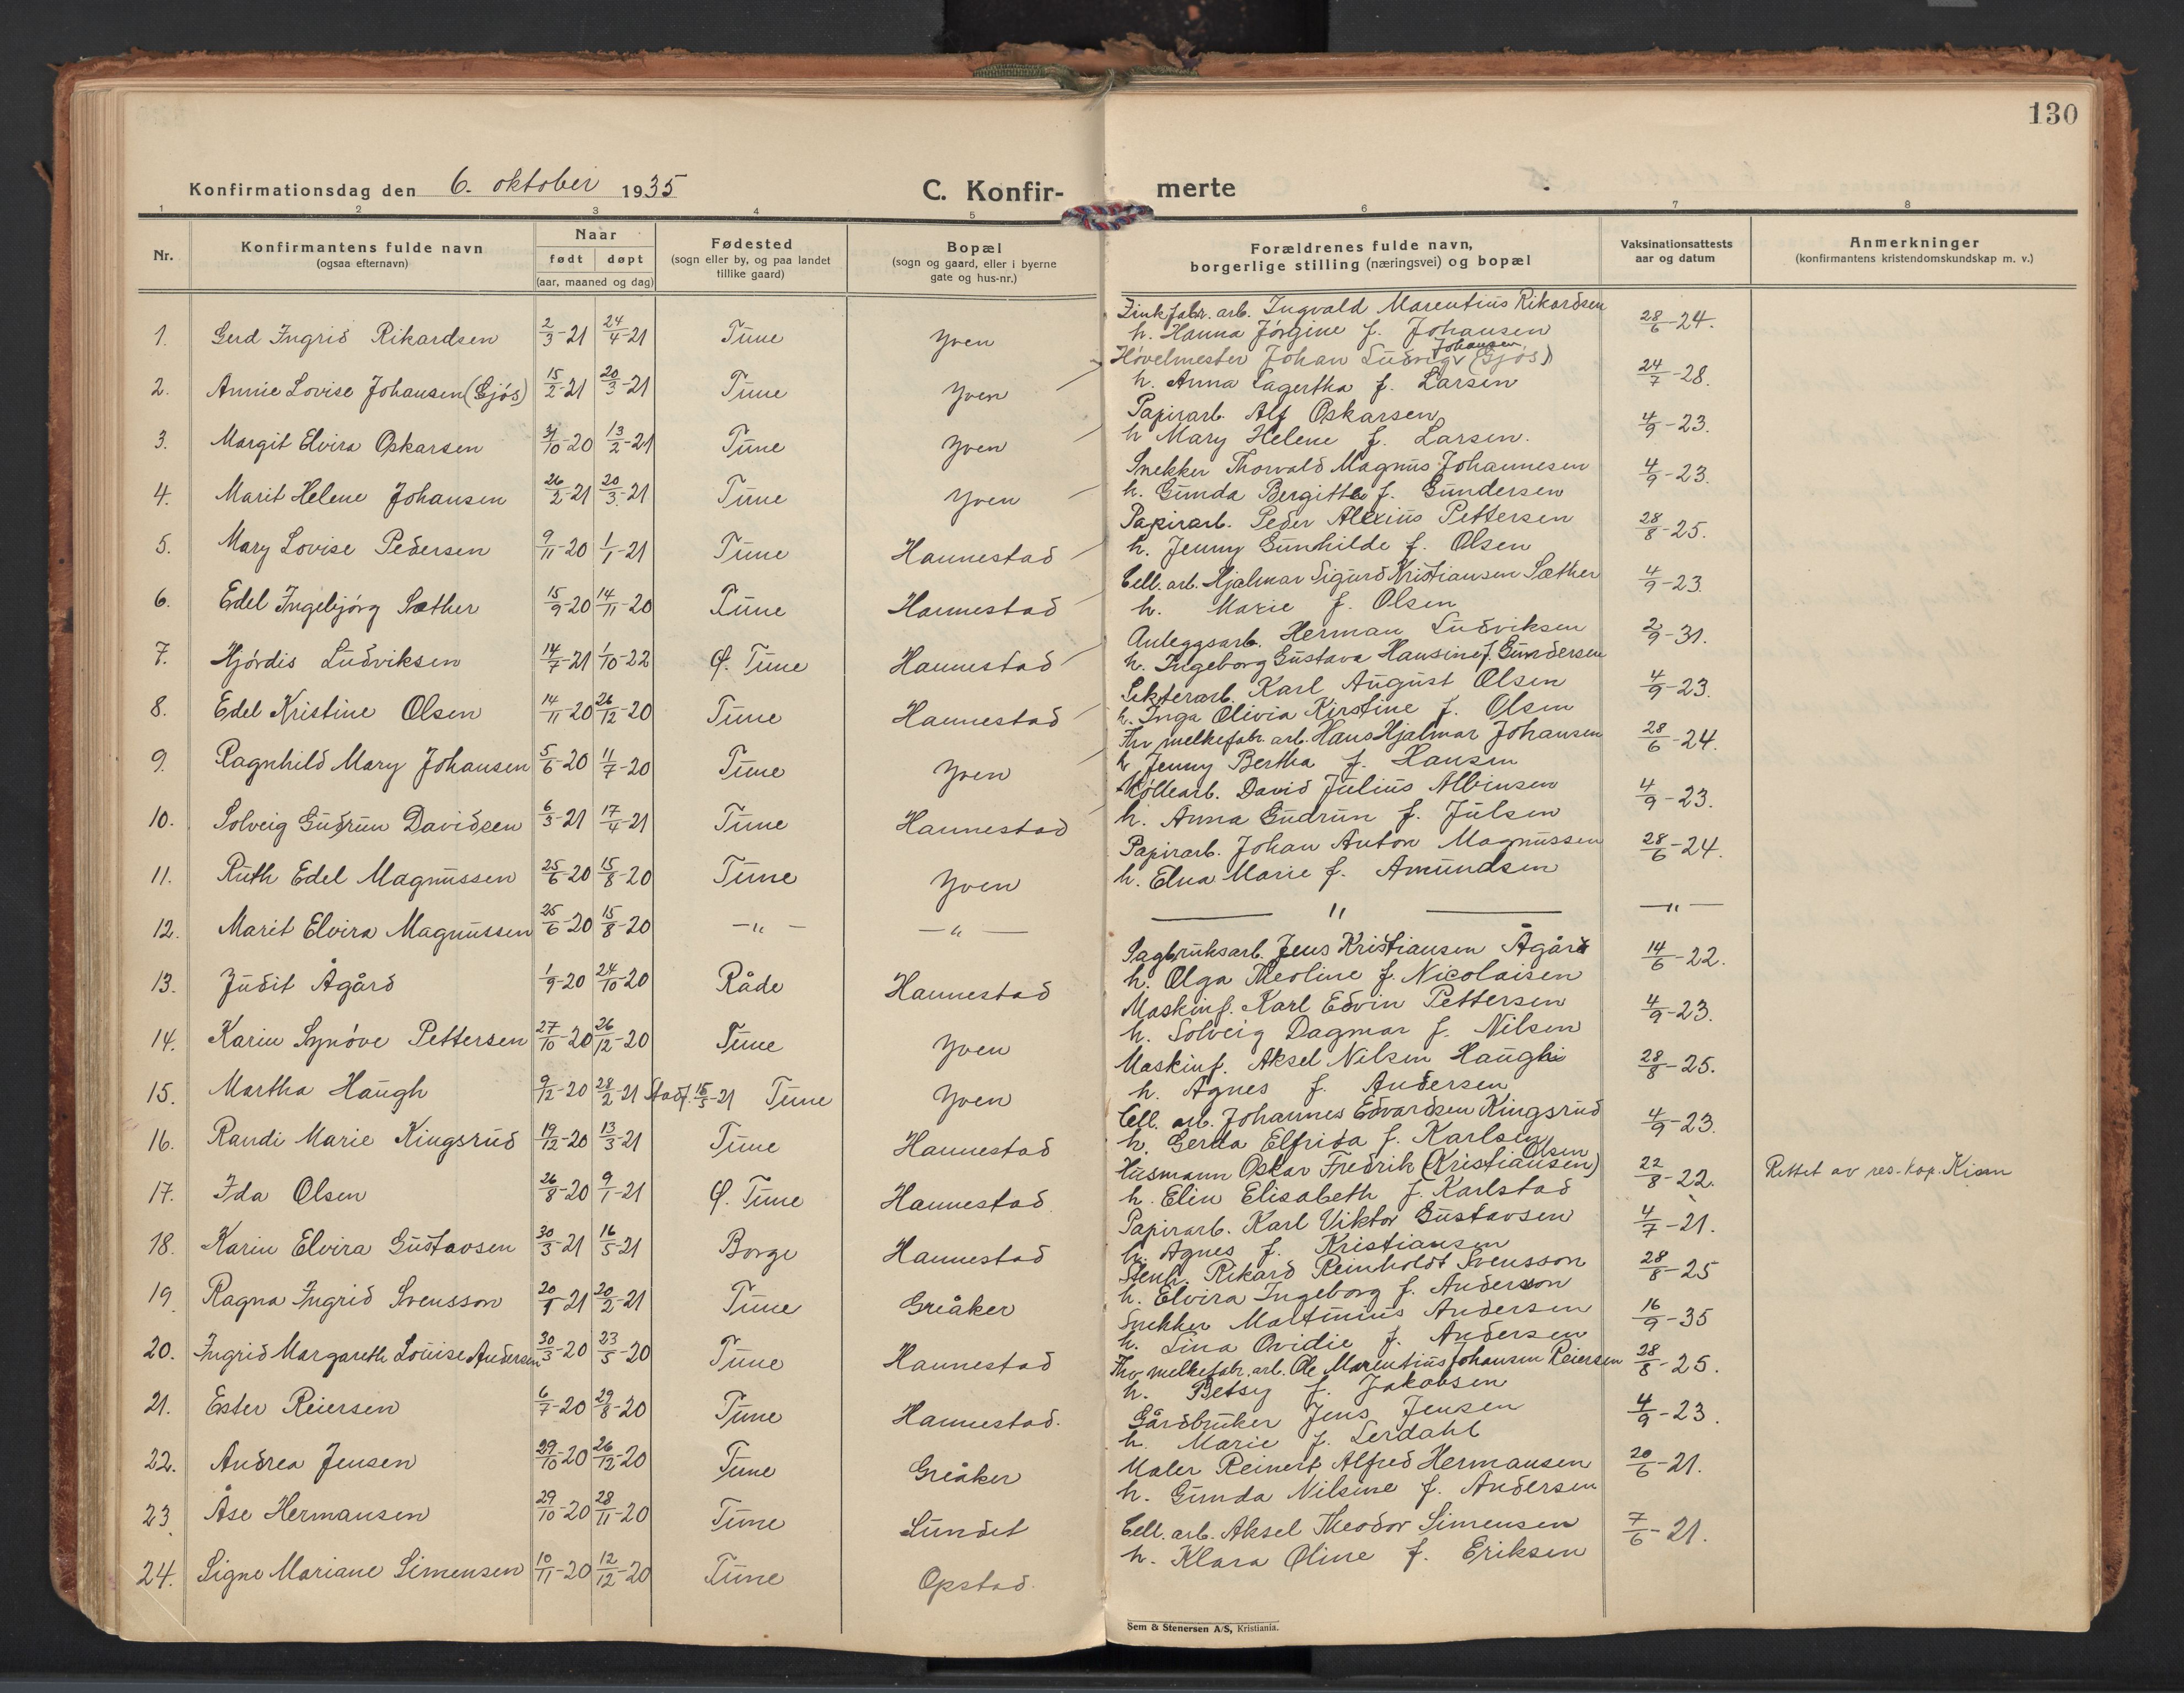 130
Konfirmationsdag den 6. oktober 1935 C. Konfir- merte
1 2 3 4 5 6 7 8
Nr. Konfirmantens fulde navn (ogsaa efternavn) Naar født døpt (aar, maaned og dag) Fødested (sogn eller by, og paa landet tillike gaard) Bopæl (sogn og gaard, eller i byerne gate og hus-nr.) Forældrenes fulde navn, borgerlige stilling (næringsvei) og bopæl Vaksinationsattests aar og datum Anmerkninger (konfirmantens kristendomskundskap m. v.)
1. Gerd Ingrid Rikardsen 2/3-21 24/4-21 Tune Yven Zinkfabr. arb. Ingvald Marentius Rikardsen 28/6-24.
h. Hanna Jørgine f. Johansen
2. Annie Lovise Johansen (Gjøs) 15/2-21 20/3-21 Tune Yven Høvelmester Johan Ludvig Johansen (Gjøs) 24/7-28.
h. Anna Lagertha f. Larsen
3. Margit Elvira Oskarsen 31/10-20 13/2-21 Tune Yven Papirarb. Alf Oskarsen 4/9-23.
h Mary Helene f. Larsen.
4. Marit Helene Johansen 26/2-21 20/3-21 Tune Yven Snekker Thorvald Magnus Johannesen 4/9-23.
h. Gunda Bergitte f. Gundersen
5. Mary Lovise Pedersen 9/11-20 1/1-21 Tune Hannestad Papirarb. Peder Alexius Pettersen 28/8-25.
h. Jenny Gunhilde f. Olsen
6. Edel Ingebjørg Sæther 15/9-20 14/11-20 Tune Hannestad Cell. arb. Hjalmar Sigurd Kristiansen Sæther 4/9-23.
h. Marie f. Olsen
7. Hjørdis Ludviksen 14/7-21 1/10-22 Ø. Tune Hannestad Anleggsarb. Herman Ludviksen 2/9-31.
h. Ingeborg Gustava Hansine f. Gundersen
8. Edel Kristine Olsen 14/11-20 26/12-20 Tune Hannestad Lekterarb. Karl August Olsen 4/9-23.
h. Inga Olivia Kirstine f. Olsen
9. Ragnhild Mary Johansen 5/6-20 11/7-20 Tune Yven Thv melkefabr. arb. Hans Hjalmar Johansen 28/6-24.
h Jenny Bertha f. Hansen
10. Solveig Gudrun Davidsen 6/3-21 17/4-21 Tune Hannestad Møllearb. David Julius Albinsen 4/9-23.
h. Anna Gudrun f. Julsen
11. Ruth Edel Magnussen 25/6-20 15/8-20 Tune Yven Papirarb. Johan Anton Magnussen 28/6-24.
h. Elna Marie f. Amundsen
12. Marit Elvira Magnussen 25/6-20 15/8-20 —"— —"— —"— —"—
13. Judit Ågård 1/9-20 24/10-20 Råde Hannestad Sagbruksarb. Jens Kristiansen Ågård 14/6-22.
h. Olga Theoline f. Nicolaisen
14. Karin Synøve Pettersen 27/10-20 26/12-20 Tune Yven Maskinf. Karl Edvin Pettersen 4/9-23.
h. Solveig Dagmar f. Nilsen
15. Martha Haugh 9/12-20 28/2-21 Stadf. 15/5-21 Tune Yven Maskinf. Aksel Nilsen Haugh 28/8-25.
h. Agnes f. Andersen
16. Randi Marie Kingsrud 19/12-20 13/3-21 Tune Hannestad Cell. arb. Johannes Edvardsen Kingsrud 4/9-23.
h. Gerda Elfrida f. Karlsen
17. Ida Olsen 26/8-20 9/1-21 Ø. Tune Hannestad Husmann Oskar Fredrik (Kristiansen) Olsen 22/8-22. Rettet av res. kap. Kiøn
h. Elin Elisabeth f. Karlstad
18. Karin Elvira Gustavsen 30/3-21 16/5-21 Borge Hannestad Papirarb. Karl Viktor Gustavsen 4/7-21.
h. Agnes f. Kristiansen
19. Ragna Ingrid Svensson 20/1-21 20/2-21 Tune Greåker Stenh. Rikard Reinholdt Svensson 28/8-25
h. Elvira Ingeborg f. Andersson
20. Ingrid Margareth Louise Andersen 30/3-20 23/5-20 Tune Hannestad Snekker Martinius Andersen 16/9-35
h. Lina Ovidie f. Andersen
21. Ester Reiersen 6/7-20 29/8-20 Tune Hannestad. Thv melkefabr. arb. Ole Marentius Johansen Reiersen 28/8-25.
h. Betsy f. Jakobsen
22. Andrea Jensen 29/10-20 26/12-20 Tune Greåker Gårdbruker Jens Jensen 4/9-23.
h. Marie f. Lerdahl
23. Åse Hermansen 29/10-20 28/11-20 Tune Sundet Maler Reinert Alfred Hermansen 20/6-21.
h. Gunda Nilsine f. Andersen
24. Signe Mariane Simensen 10/11-20 12/12-20 Tune Opstad. Cell. arb. Aksel Theodor Simensen 7/6-21.
h. Klara Oline f. Eriksen
Sem & Stenersen A/S, Kristiania.